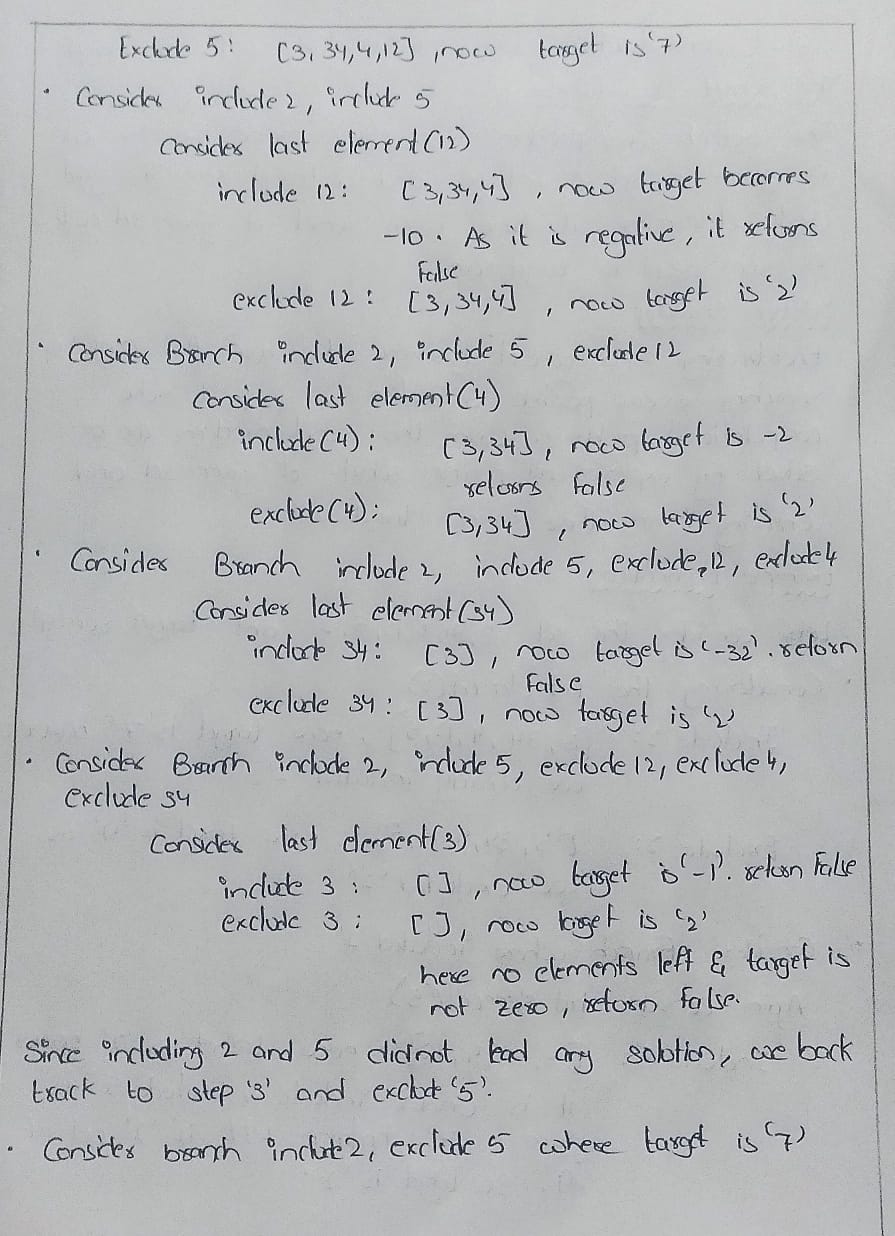 Exclude 5: [3, 34, 4, 12], now target is '7'
• Consider include 2, include 5
Consider last element (12)
include 12: [3, 34, 4], now target becomes
-10. As it is negative, it returns
False
exclude 12: [3, 34, 4], now target is '2'
• Consider Branch include 2, include 5, exclude 12
Consider last element (4)
include (4): [3, 34], now target is -2
returns False
exclude (4): [3, 34], now target is '2'
• Consider Branch include 2, include 5, exclude 12, exclude 4
Consider last element (34)
include 34: [3], now target is '-32'. return
False
exclude 34: [3], now target is '2'
• Consider Branch include 2, include 5, exclude 12, exclude 4,
exclude 34
Consider last element (3)
include 3: [], now target is '-1'. return False
exclude 3: [], now target is '2'
here no elements left & target is
not zero, return false.
Since including 2 and 5 didnot lead any solution, we back
track to step '3' and exclude '5'.
• Consider branch include 2, exclude 5 where target is '7'